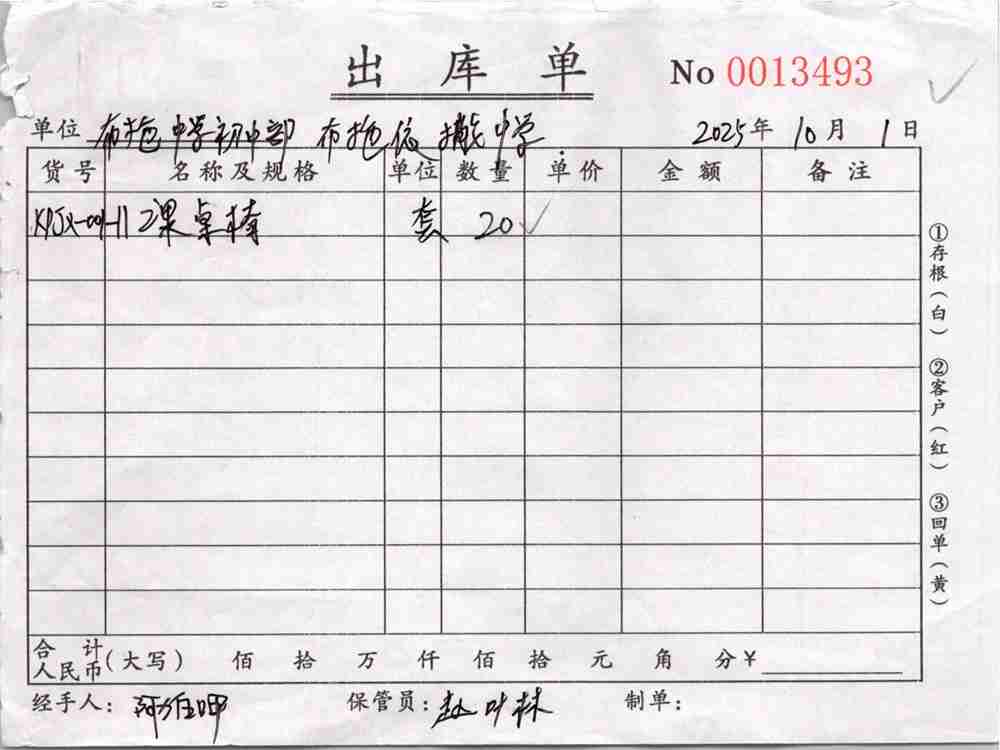 出库单 No 0013493
单位 布拖中学初中部 布拖依撒中学 2025年10月1日
货号 名称及规格 单位 数量 单价 金额 备注
KPJX-001-11 课桌椅 套 20
合计人民币(大写) 佰 拾 万 仟 佰 拾 元 角 分¥
经手人: 保管员:赵叶林 制单:
①存根(白) ②客户(红) ③回单(黄)